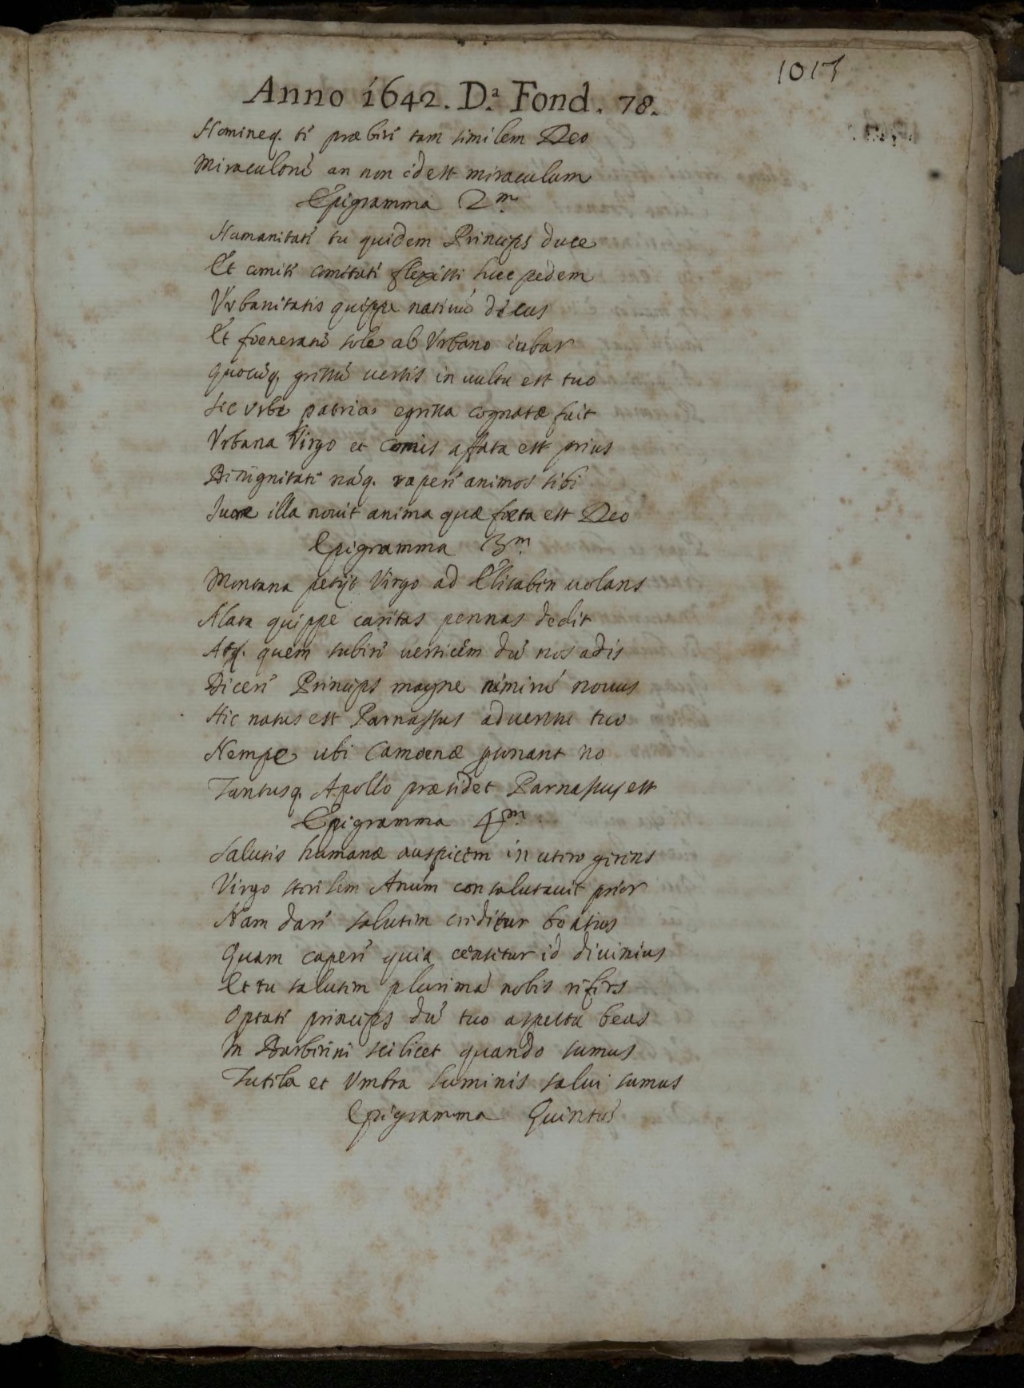 1017
Anno 1642. D.ª Fond. 78.
Homineq. ti præbiri tam similem Deo
Miraculoru an non id est miraculum
Epigramma 2.m
Humanitati tu quidem Princips duce
Et comiti comitati flexisti huc pedem
Vrbanitatis quippe nativu dicus
Et foenerans sole ab Vrbano iubar
Quocuq. grissu vertis in uultu est tuo
Sic urbe patria egrissa cognatæ fuit
Vrbana Virgo et comis affata est prius
Binignitati naq. raperi animos sibi
Iure illa novit anima quæ foeta est Deo
Epigramma 3.m
Montana petijt Virgo ad Elisabin uolans
Alata quippe caritas pennas dedit
Atq. quem subiri uerticem du nos adis
Diceri Princips magne nimiru nouus
Hic natus est Parnassus aduentu tuo
Nempe ubi Camoenæ no
Tantusq. Apollo præsidet Parnassus est
Epigramma 4.m
Salutis humanæ auspicem in utiro girens
Virgo stirilem Anum consalutauit prior
Nam dari salutim criditur beatius
Quam caperi quia censitur id diuinius
Et tu salutim plurima nobis rifirs
Optati princips du tuo aspectu beas
In Barbirini scilicet quando sumus
Tutila et Vmbra luminis salui sumus
Epigramma Quintu